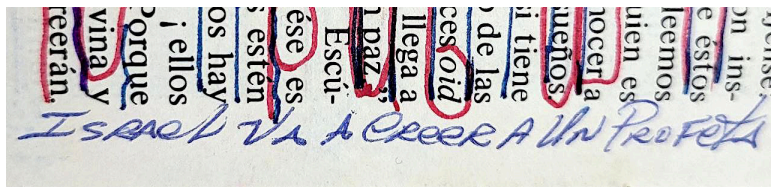 jense
on ins-
e éstos
leemos
uien es
nocer a
ueños
si tiene
o de las
ces oid
llega a
n paz.”
Escú-
ése es
s estén
os hay
¡ ellos
Porque
vina y
reerán.
ISRAEL VA A CREER A UN PROFETA